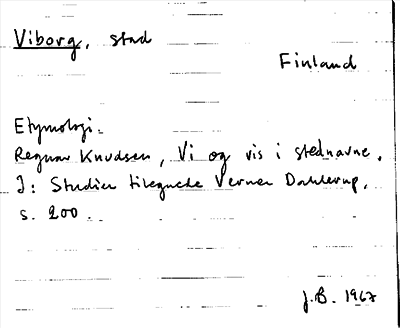 Viborg, stad
Finland
Etymologi.
Regnar Knudsen, Vi og vis i stednavne.
I: Studier tilegnede Verner Dahlerup,
s. 200.
J.B. 1967